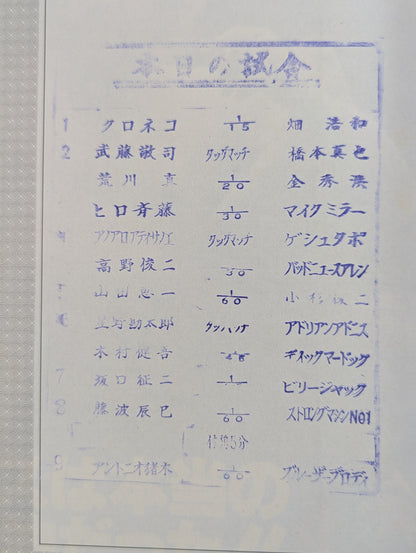 本日の試合
1 クロネコ 1/15 畑浩和
2 武藤敬司 タッグマッチ 橋本真也
荒川真 1/20 金秀洪
ヒロ斉藤 1/30 マイクミラー
アノアロアティサノエ タッグマッチ ゲシュタポ
高野俊二 30 バッドニュースアレン
5 山田恵一 1/60 小杉俊二
6 星野勘太郎 アドリアンアドニス
木村健吾 45 ディックマードック
7 坂口征二 1 ビリージャック
8 藤波辰巳 1/60 ストロングマシンNO1
5分
9 アントニオ猪木 1/60 ブルーザーブロディ